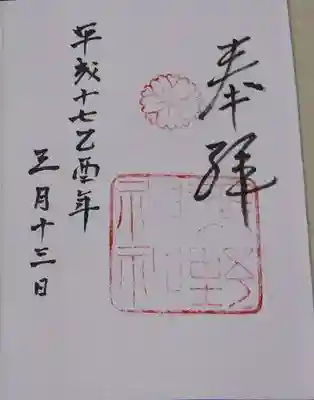 奉拝
平成十七乙酉年
三月十三日